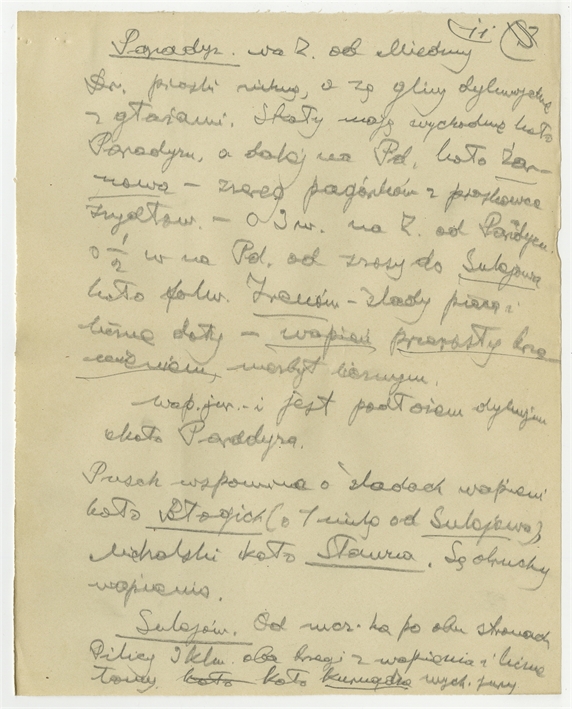 11
Paradyż. na Z. od Miedzny
Dr. piaski nikną, a są gliny dyluwjalne
z głazami. Skały mają wychodnie koło
Paradyżu, a dalej na Pd. koło Żar-
nowa – szereg pagórków z piaskowca
szydłow. – o 3 w. na Z. od Paradyża
o ½ w na Pd. od szosy do Sulejowa
koło folw. Irenów – ślady pieca i
liczne doły – wapień przerosły krze-
mieniem, niezbyt licznym.
wap. jur. – i jest podłożem dyluwjum
około Paradyża.
Pusch wspomina o śladach wapieni
koło Błogich (o 1 milę od Sulejowa),
Michalski koło Sławna. Są okruchy
wapienia.
Sulejów. Od po obu stronach
Pilicy 3 klm. oba brzegi z wapienia i liczne
łomy. koło koło Kurnędza wych. jury